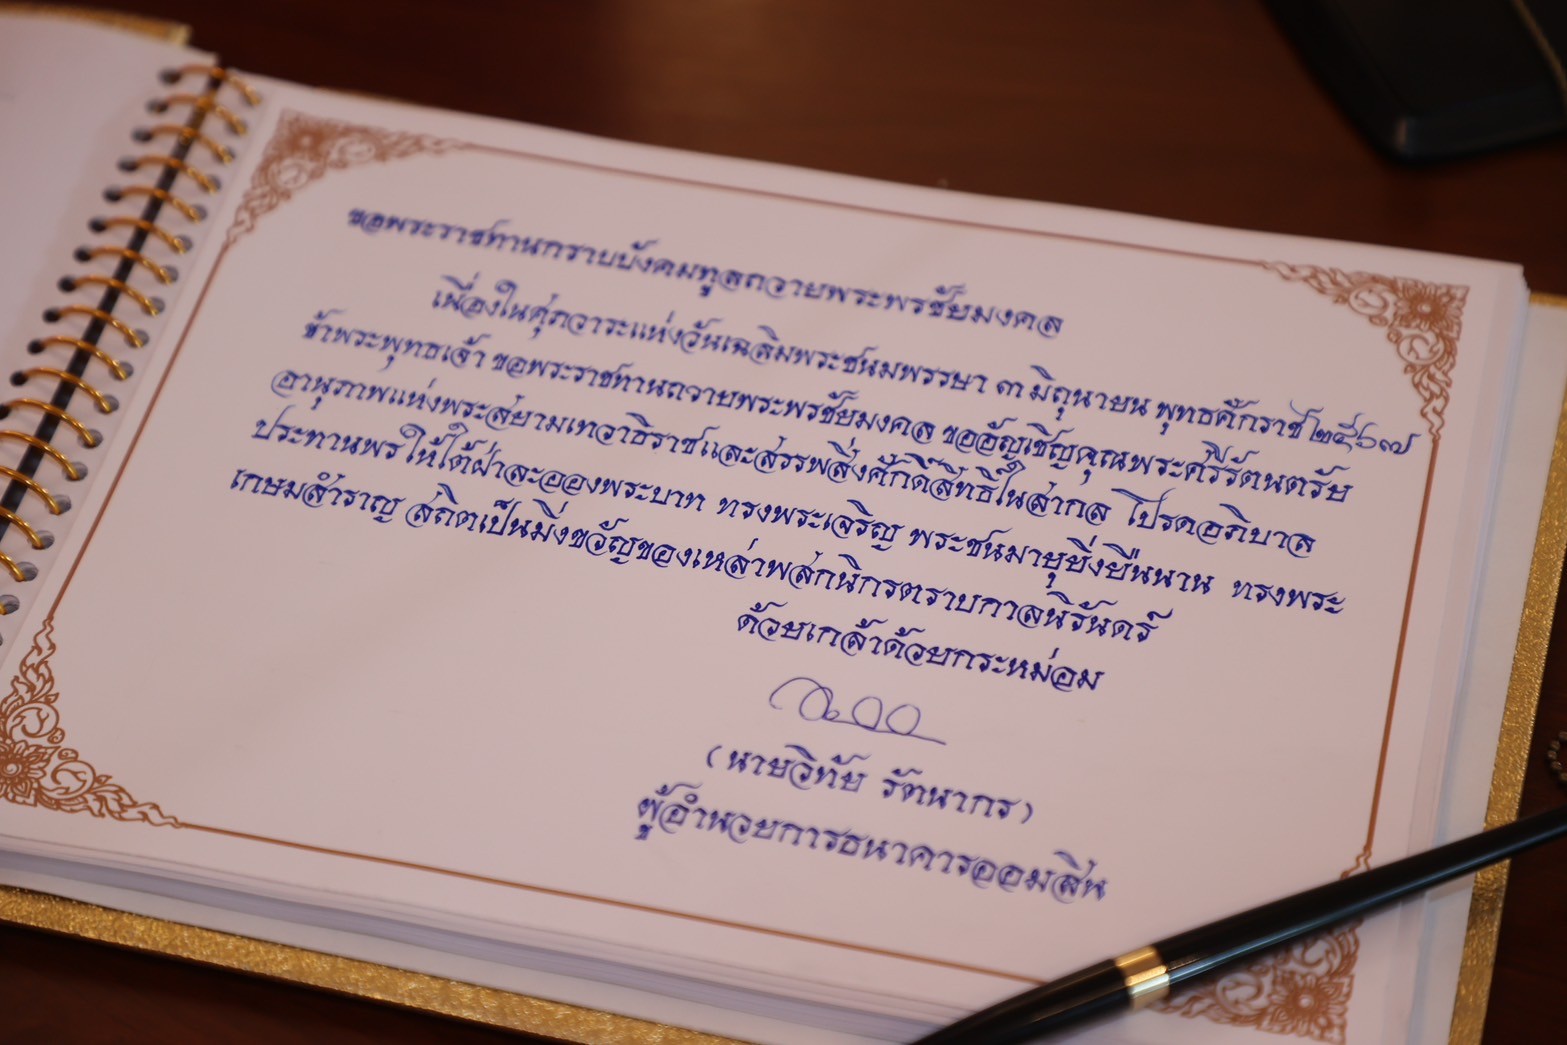 ขอพระราชทานกราบบังคมทูลถวายพระพรชัยมงคล
เนื่องในศุภวาระแห่งวันเฉลิมพระชนมพรรษา ๓ มิถุนายน พุทธศักราช ๒๕๖๗
ข้าพระพุทธเจ้า ขอพระราชทานถวายพระพรชัยมงคล ขออัญเชิญคุณพระศรีรัตนตรัย
อานุภาพแห่งพระสยามเทวาธิราชและสรรพสิ่งศักดิ์สิทธิ์ในสากล โปรดอภิบาล
ประทานพรให้ใต้ฝ่าละอองพระบาท ทรงพระเจริญ พระชนมายุยิ่งยืนนาน ทรงพระ
เกษมสำราญ สถิตเป็นมิ่งขวัญของเหล่าพสกนิกรตราบกาลนิรันดร์
ด้วยเกล้าด้วยกระหม่อม
(นายวิทัย รัตนากร)
ผู้อำนวยการธนาคารออมสิน